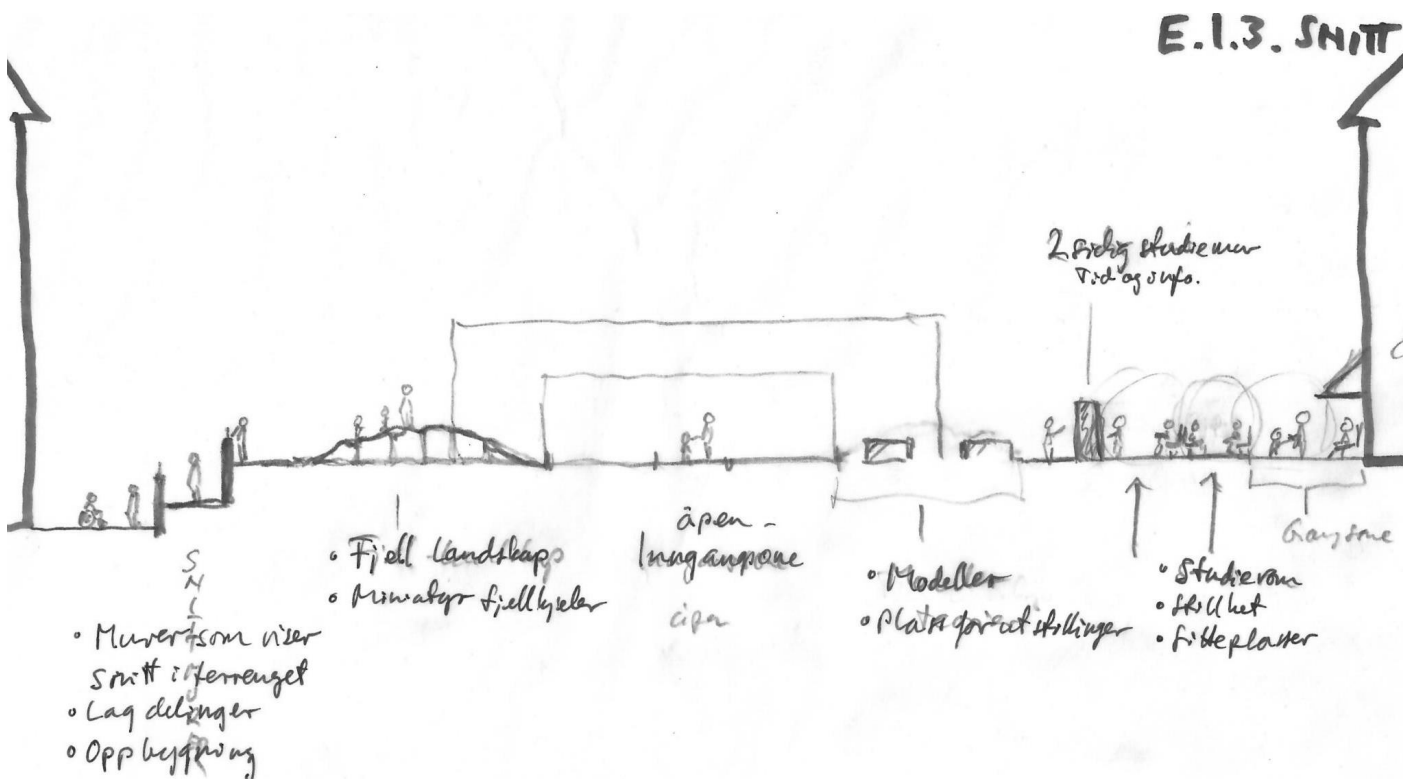 E.1.3. SNITT
2 sidig studiemur
Tid og info.
• Fjell landskapp
• Miniatyr fjellhyller
åpen -
Inngangsone
åpen
• Modeller
• Plass for utstillinger
• Studierom
• Stillhet
• Sitteplasser
Gangsone
• Murer som viser
snitt i terrenget
• Lag delinger
• Oppbygning